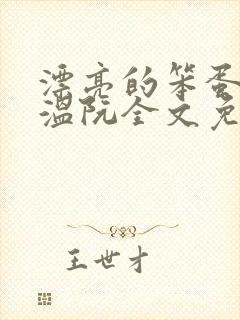 漂亮的笨蛋
温阮全文免
王世才